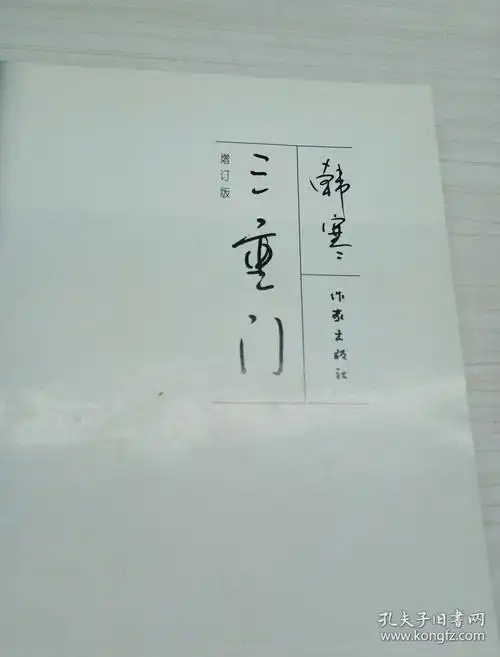 韩寒
作家出版社
三重门
增订版
孔夫子旧书网
www.kongfz.com